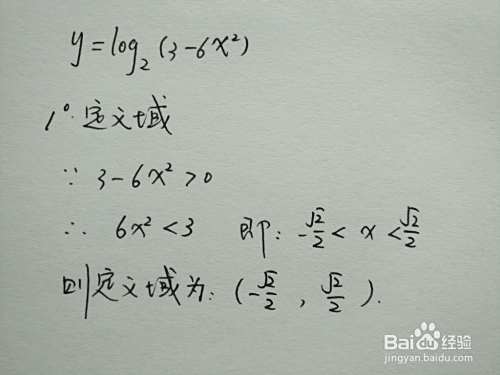 y=log₂(3-6x²)
1°.定义域
∵ 3-6x²>0
∴ 6x²<3 即:-√2/2<x<√2/2
则定义域为:(-√2/2,√2/2).
Bai du 经验
jingyan.baidu.com